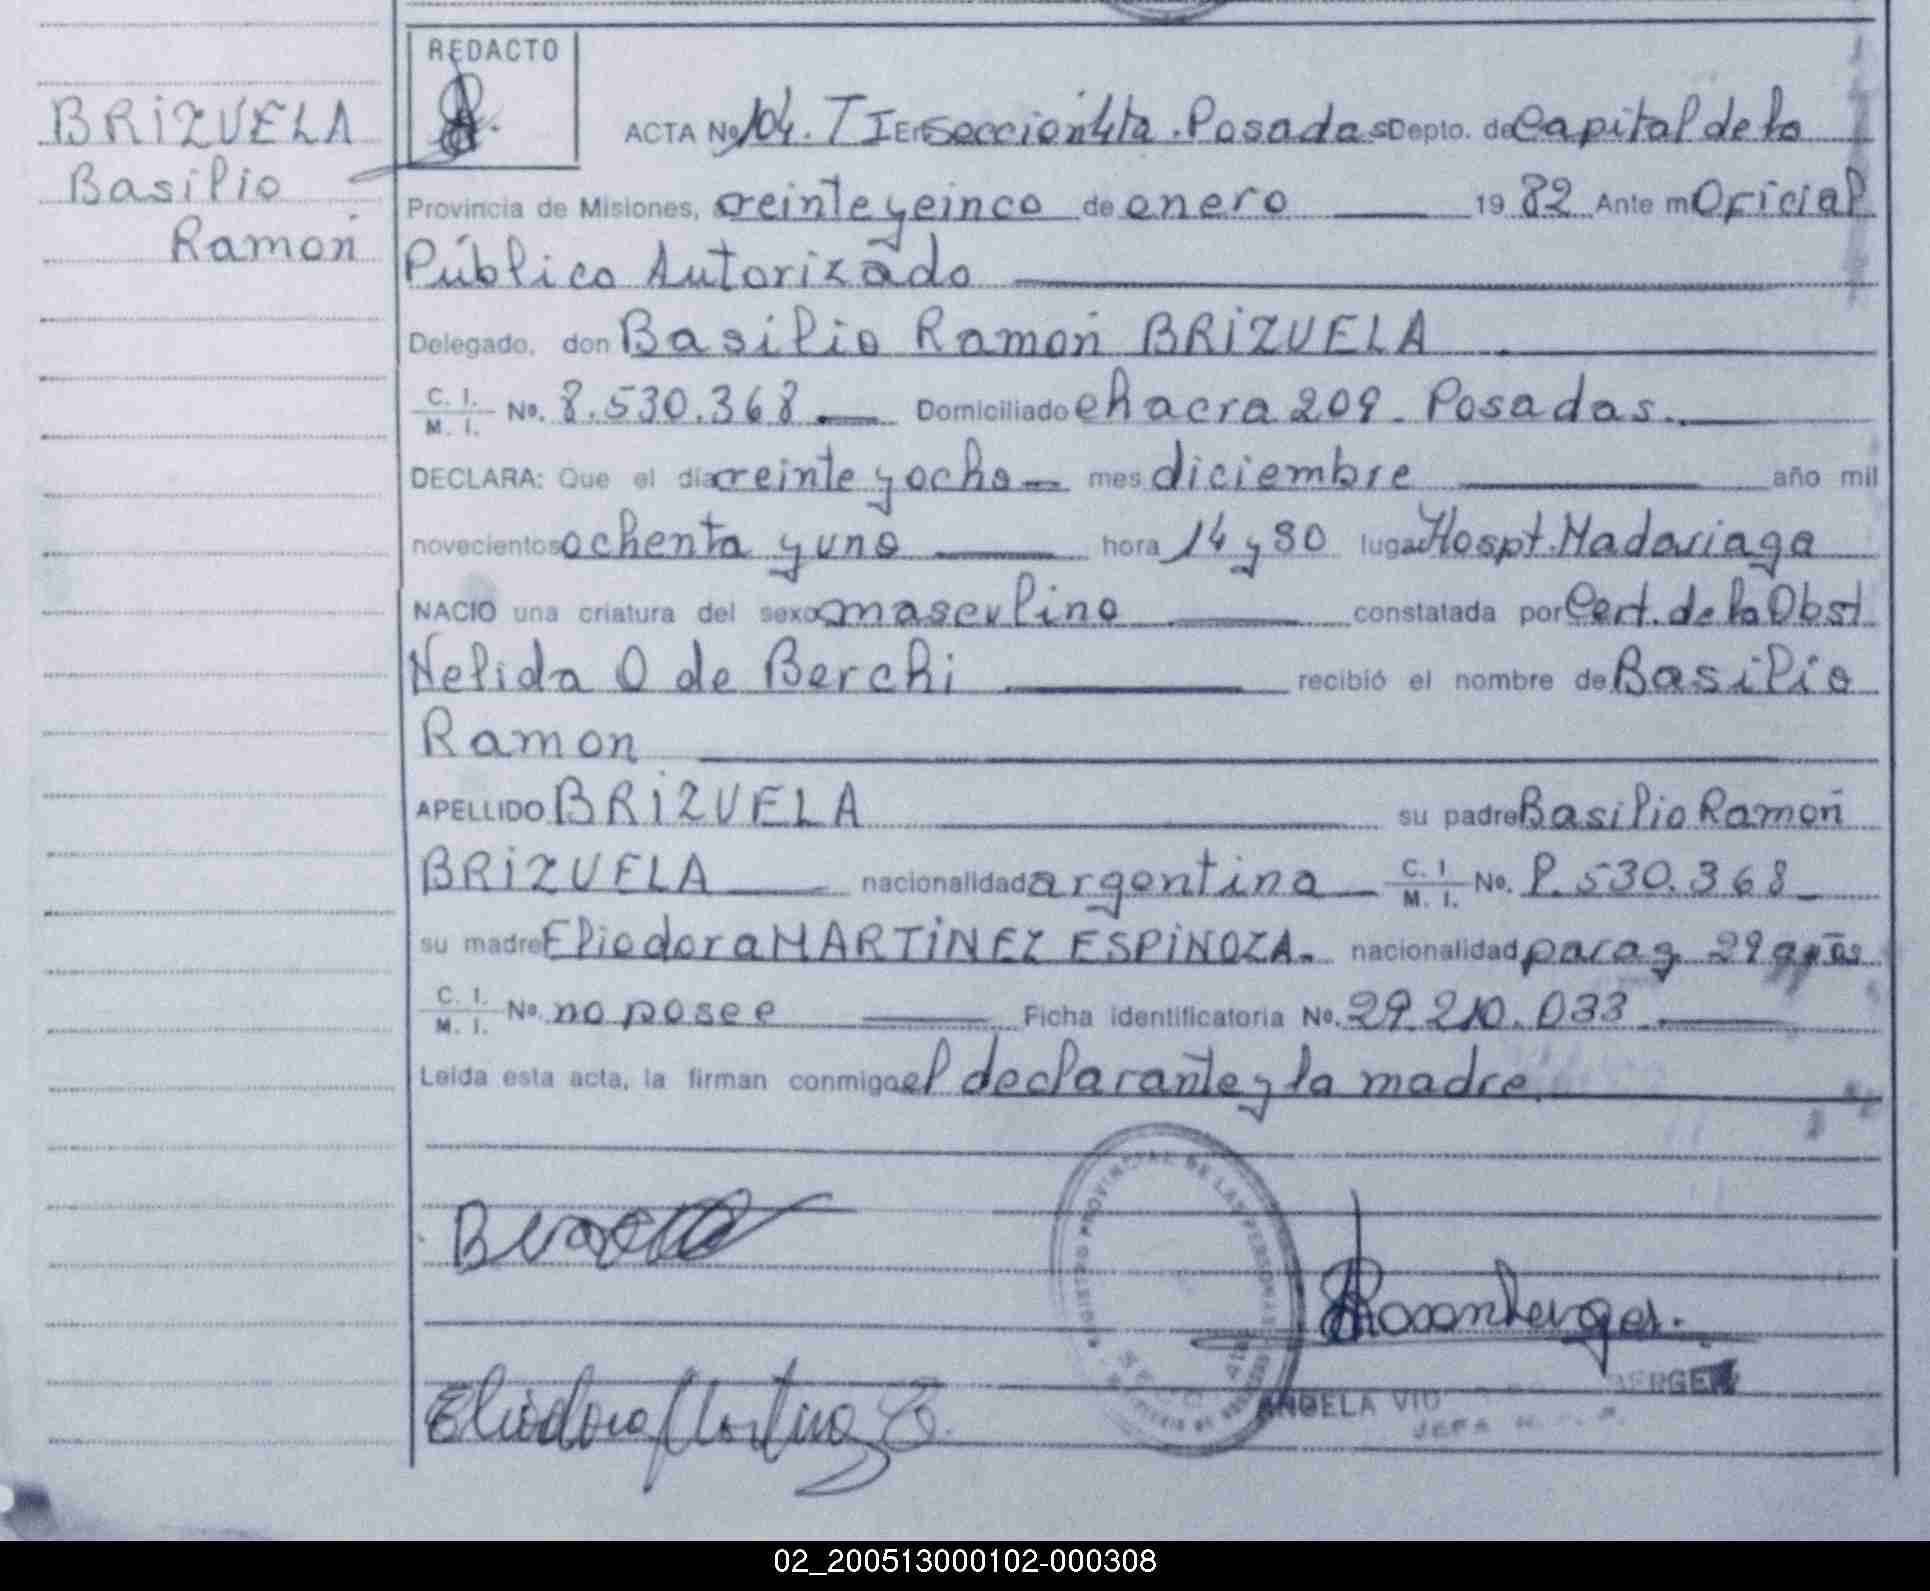 REDACTO
BRIZUELA
Basilio
Ramoń
ACTA No 104. T I En Seccion 4ta. Posadas Depto. de Capital de la
Provincia de Misiones, veinte y cinco de enero 19 82 Ante mi Oficial
Público Autorizado
Delegado, don Basilio Ramoń BRIZUELA
C. I. M. I. No. 8.530.368 Domiciliado chacra 209. Posadas.
DECLARA: Que el día veinte y ocho mes diciembre año mil
novecientos ochenta y uno hora 14 y 30 lugar Hospt. Madariaga
NACIO una criatura del sexo masculino constatada por Cert. de la Obst
Nelida O de Berchi recibió el nombre de Basilio
Ramon
APELLIDO BRIZUELA su padre Basilio Ramoń
BRIZUELA nacionalidad argentina C. I. M. I. No. 8.530.368
su madre Eliodora MARTINEZ ESPINOZA. nacionalidad parag. 29 años
C. I. M. I. No. no posee Ficha identificatoria No. 29.210.033
Leída esta acta, la firman conmigo el declarante y la madre
REGISTRO PROVINCIAL DE LAS PERSONAS
4ta
Rosenberger.
ANGELA VIC BERGER
JEFA
Eliodora Martinez E.
02_200513000102-000308